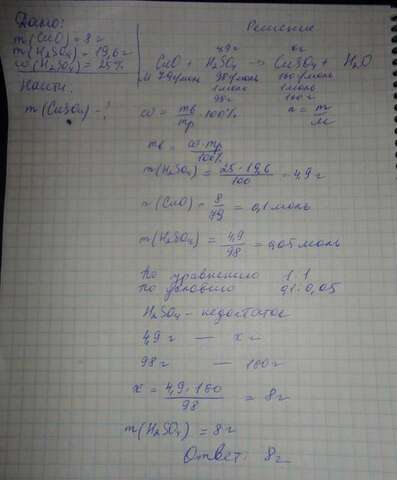 Дано:
m(CuO) = 8 г
m(H₂SO₄) = 19,6 г
ω(H₂SO₄) = 25%
Найти:
m(CuSO₄) - ?
Решение
4,9 г x г
CuO + H₂SO₄ → CuSO₄ + H₂O
M 79 г/моль 98 г/моль 160 г/моль
1 моль 1 моль
98 г 160 г
ω = mв/mр · 100% n = m/M
mв = ω · mр / 100%
m(H₂SO₄) = 25 · 19,6 / 100 = 4,9 г
n(CuO) = 8/79 = 0,1 моль
n(H₂SO₄) = 4,9/98 = 0,05 моль
По уравнению 1:1
По условию 0,1:0,05
H₂SO₄ - недостаток
4,9 г — x г
98 г — 160 г
x = 4,9 · 160 / 98 = 8 г
m(H₂SO₄) = 8 г
Ответ: 8 г